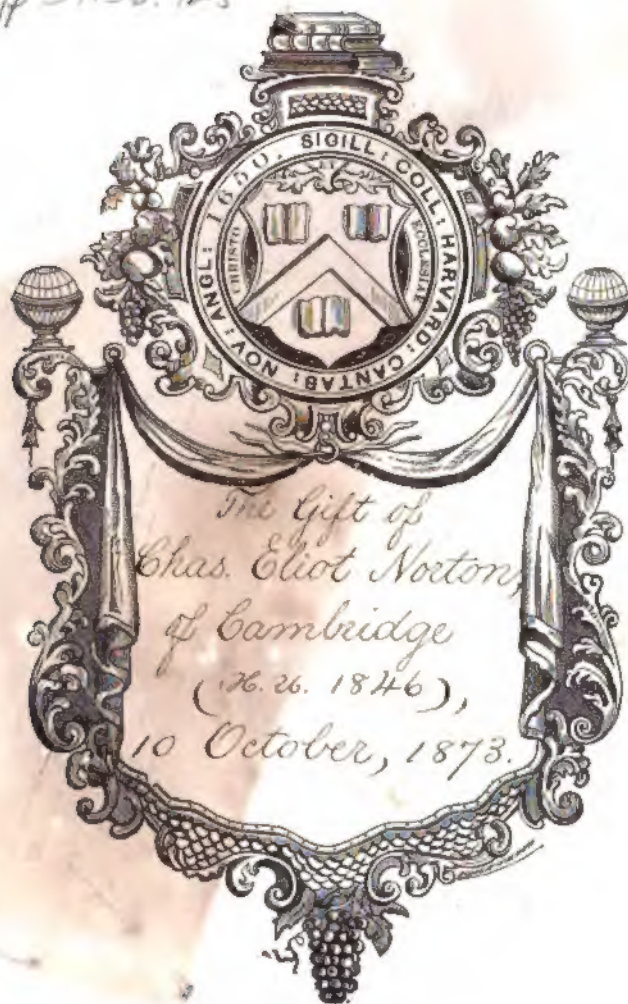 SIGILL: COLL: HARVARD: CANTAB: NOV: ANGL: 1650.
CHRISTO
ECCLESIAE
The Gift of
Chas. Eliot Norton,
of Cambridge
(H. U. 1846),
10 October, 1873.